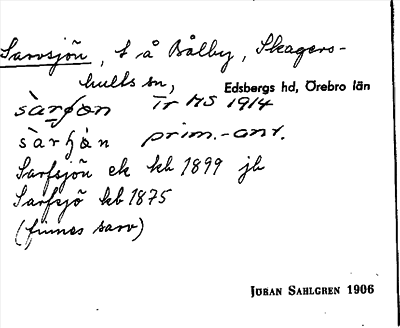 Sarvsjön, t å Bålby, Skagers-
hults sn, Edsbergs hd, Örebro län
sàrfȯn Tr HS 1914
sàrfȧn prim.-ant.
Sarfsjön ek kb 1899 jb
Sarfsjö kb 1875
(finnes sarv)
JÖRAN SAHLGREN 1906